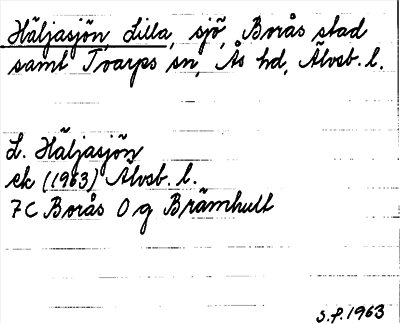 Häljasjön, Lilla, sjö, Borås stad
samt Tvarps sn, Ås hd, Älvsb. l.
L. Häljasjön
ek (1963) Älvsb. l.
7C Borås 0 g Brämhult
S.P. 1963